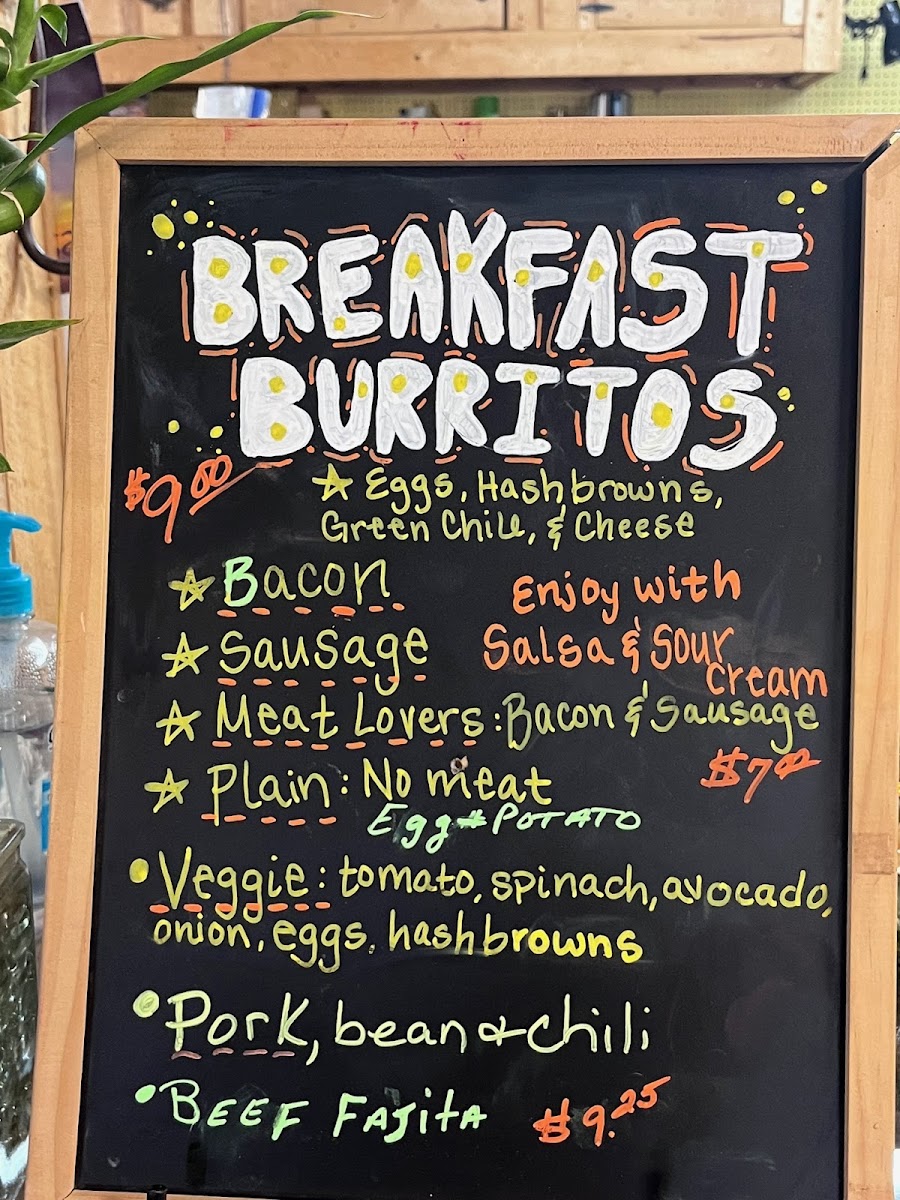 BREAKFAST
BURRITOS
$9.00
☆ Eggs, Hashbrowns,
Green Chile, & Cheese
☆ Bacon
Enjoy with
Salsa & Sour
Cream
☆ Sausage
☆ Meat Lovers: Bacon & Sausage
☆ Plain: No meat
$7.00
Egg + POTATO
• Veggie: tomato, spinach, avocado,
onion, eggs, hashbrowns
• Pork, bean & chili
• BEEF FAJITA $9.25